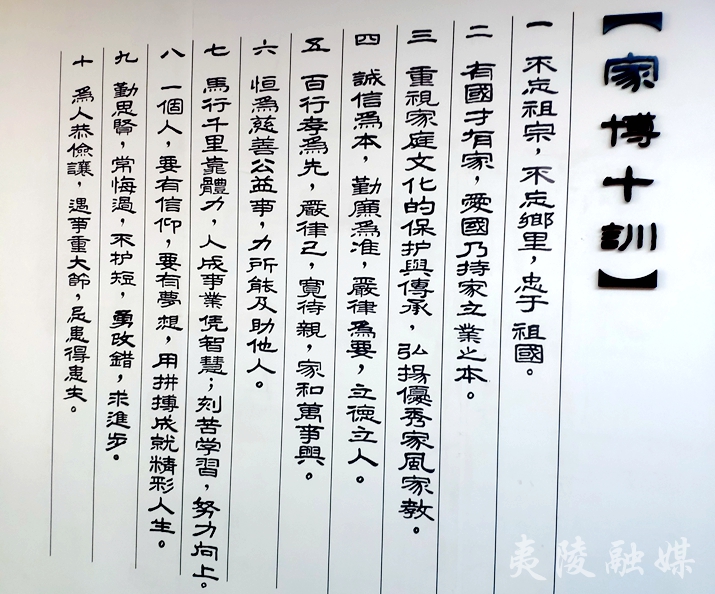 【家博十訓】
一 不忘祖宗，不忘鄉里，忠于祖國。
二 有國才有家，愛國乃持家立業之本。
三 重視家庭文化的保护與傳承，弘揚優秀家風家教。
四 誠信爲本，勤廉爲准，嚴律爲要，立德立人。
五 百行孝爲先，嚴律己，寬待親，家和萬事興。
六 恒爲慈善公益事，力所能及助他人。
七 馬行千里靠體力，人成事業凭智慧；刻苦学習，努力向上。
八 一個人，要有信仰，要有夢想，用拼搏成就精彩人生。
九 勤思賢，常悔過，不护短，勇改錯，求進步。
十 爲人恭儉讓，遇事重大節，忌患得患失。
夷陵融媒